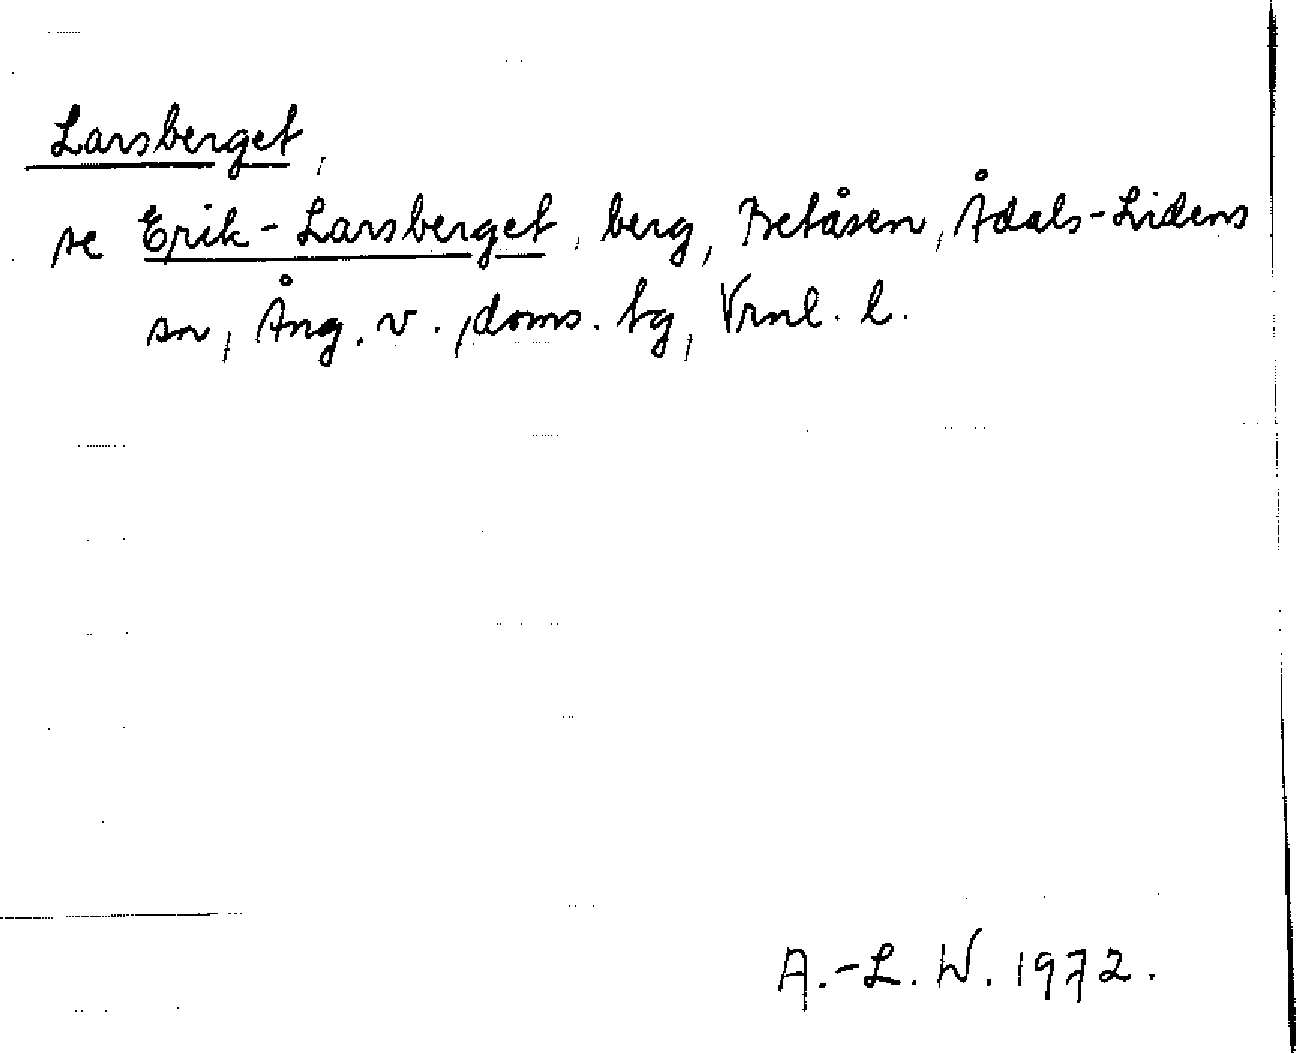 Larsberget,
se Erik-Larsberget, berg, Betåsen, Ådals-Lidens
sn, Ång. v., doms. tg, Vrnl. l.
A.-L. W. 1972.